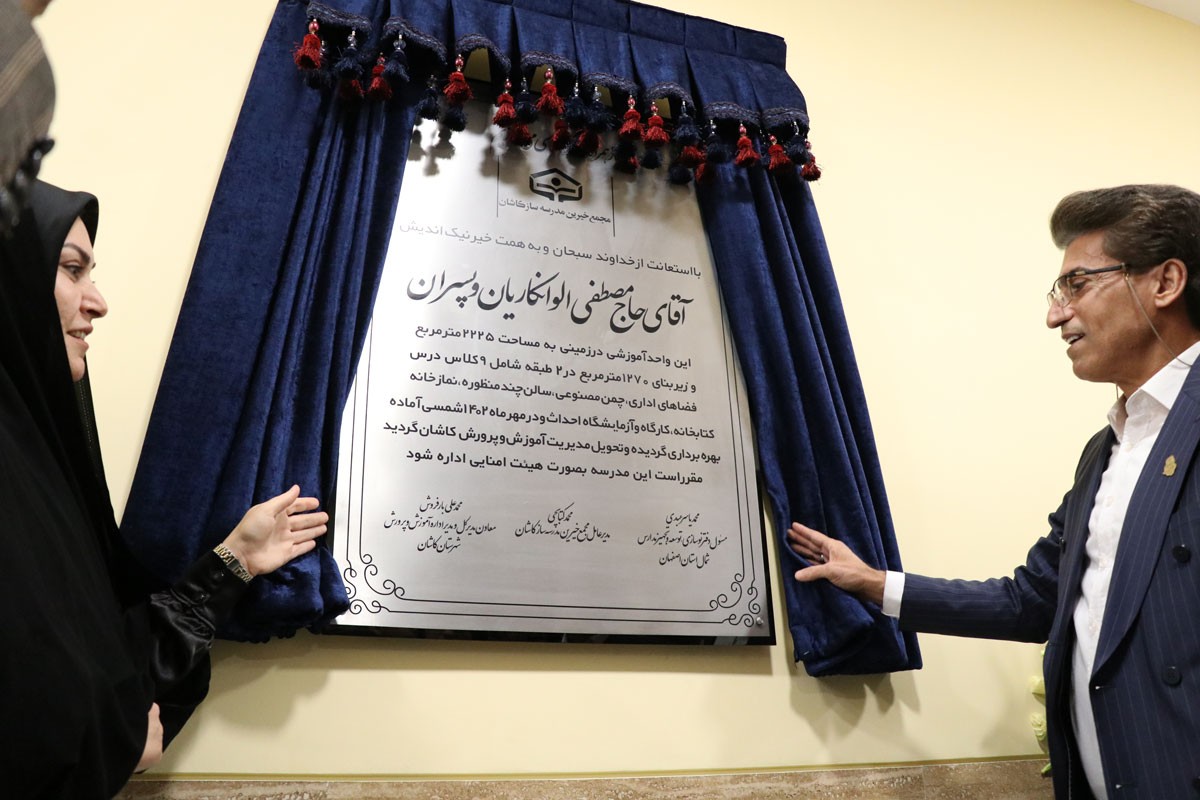 مجمع خیرین مدرسه ساز کاشان
با استعانت از خداوند سبحان و به همت خیر نیک اندیش
آقای حاج مصطفی الوانکاریان و پسران
این واحد آموزشی در زمینی به مساحت ۲۲۲۵ مترمربع
و زیربنای ۱۲۷۰ مترمربع در ۲ طبقه شامل ۹ کلاس درس
فضاهای اداری، چمن مصنوعی، سالن چند منظوره، نمازخانه
کتابخانه، کارگاه و آزمایشگاه احداث و در مهرماه ۱۴۰۲ شمسی آماده
بهره برداری گردیده و تحویل مدیریت آموزش و پرورش کاشان گردید
مقرر است این مدرسه بصورت هیئت امنایی اداره شود
محمد یاسر میدی
مسئول دفتر نوسازی، توسعه و تجهیز مدارس
شمال استان اصفهان
محمد کتابچی
مدیرعامل مجمع خیرین مدرسه ساز کاشان
محمد علی بارفروش
معاون مدیر کل و مدیر اداره آموزش و پرورش
شهرستان کاشان